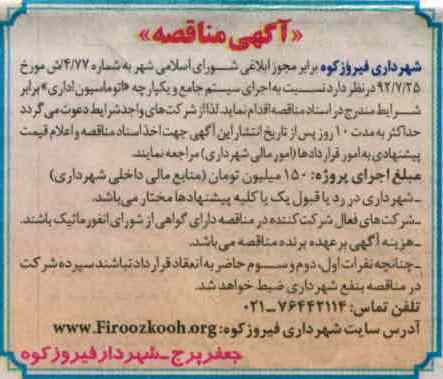 «آگهی مناقصه»
شهرداری فیروزکوه برابر مجوز ابلاغی شورای اسلامی شهر به شماره ۴/۷۷/ش مورخ
۹۲/۷/۲۵ در نظر دارد نسبت به اجرای سیستم جامع و یکپارچه «اتوماسیون اداری» برابر
شرایط مندرج در اسناد مناقصه اقدام نماید. لذا از شرکت های واجد شرایط دعوت می گردد
حداکثر به مدت ۱۰ روز پس از تاریخ انتشار این آگهی جهت اخذ اسناد مناقصه و اعلام قیمت
پیشنهادی به امور قراردادها (امور مالی شهرداری) مراجعه نمایند.
مبلغ اجرای پروژه: ۱۵۰ میلیون تومان (منابع مالی داخلی شهرداری)
ـ شهرداری در رد یا قبول یک یا کلیه پیشنهادها مختار می باشد.
ـ شرکت های فعال شرکت کننده در مناقصه دارای گواهی از شورای انفورماتیک باشند.
ـ هزینه آگهی بر عهده برنده مناقصه می باشد.
ـ چنانچه نفرات اول، دوم و سوم حاضر به انعقاد قرارداد نباشند سپرده شرکت
در مناقصه بنفع شهرداری ضبط خواهد شد.
تلفن تماس: ۷۶۴۴۲۱۱۴ـ۰۲۱
آدرس سایت شهرداری فیروزکوه: www.Firoozkooh.org
جعفر پرچ ـ شهردار فیروزکوه